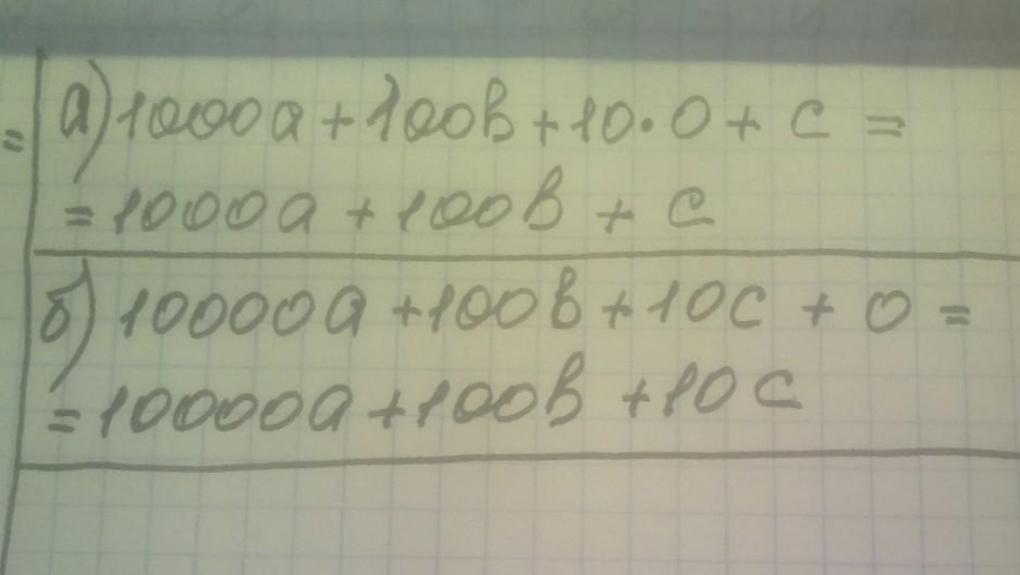 а) 1000a + 100b + 10·0 + c =
= 1000a + 100b + c
б) 10000a + 100b + 10c + 0 =
= 10000a + 100b + 10c